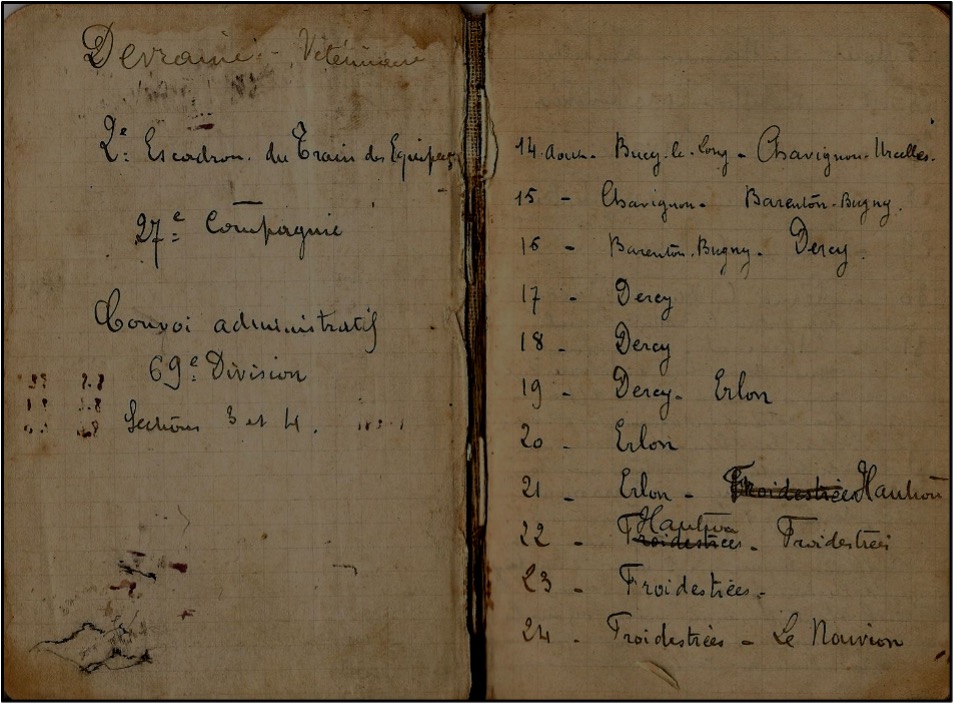 Devraine - Vétérinaire
2e: Escadron. du Train des Equipages
27e Compagnie
Convoi administratif
69e Division
Sections 3 et 4.
14. Aout - Bucy-le-Long - Chavignon-Urcelles.
15 - Chavignon - Barenton-Bugny.
16 - Barenton.Bugny - Dercy.
17 - Dercy
18 - Dercy
19 - Dercy - Erlon
20 - Erlon
21 - Erlon - Froidestrées Hauhion
22 - Froidestrées - Froidestrées
23 - Froidestrées -
24 - Froidestrées - Le Nouvion